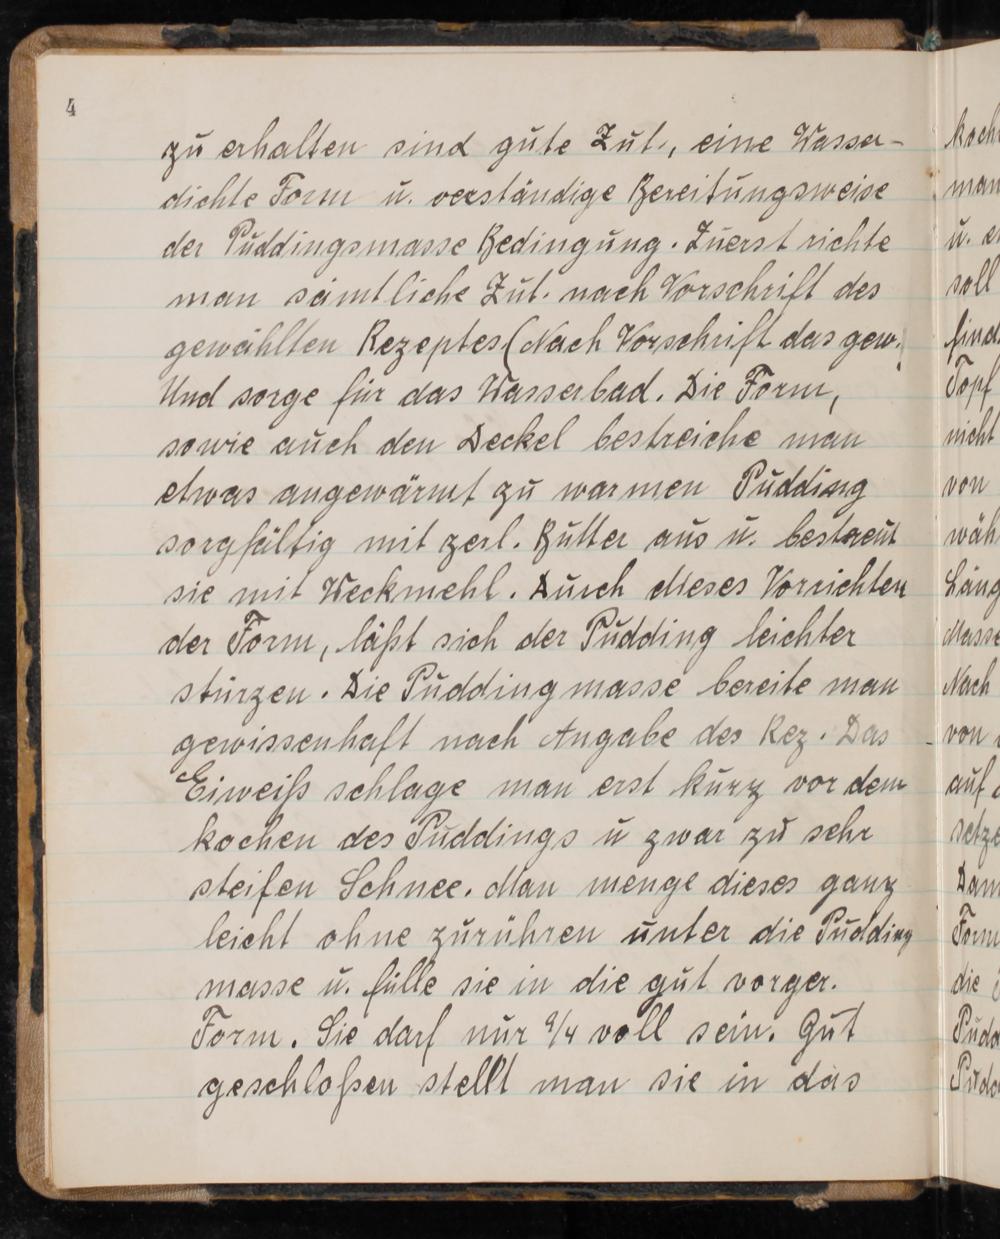 4
zu erhalten sind gute Zut., eine Wasser-
dichte Form u. verständige Bereitungsweise
der Puddingsmasse Bedingung. Zuerst richte
man sämtliche Zut. nach Vorschrift des
gewählten Rezeptes (Nach Vorschrift das gew.)
Und sorge für das Wasserbad. Die Form,
sowie auch den Deckel bestreiche man
etwas angewärmt zu warmen Pudding
sorgfältig mit zerl. Butter aus u. bestreut
sie mit Weckmehl. Durch dieses Vorrichten
der Form, läßt sich der Pudding leichter
stürzen. Die Puddingmasse bereite man
gewissenhaft nach Angabe des Rez. Das
Eiweiß schlage man erst kurz vor dem
kochen des Puddings u zwar zu sehr
steifen Schnee. Man menge dieses ganz
leicht ohne zurühren unter die Pudding
masse u. fülle sie in die gut vorger.
Form. Sie darf nur /4 voll sein. Gut
geschloßen stellt man sie in das
man
u. e
soll
Topf
nicht
von
wäh
Läng
Masse
Nach
von
auf
setze
Dam
Form
die
Pudd
Pudd